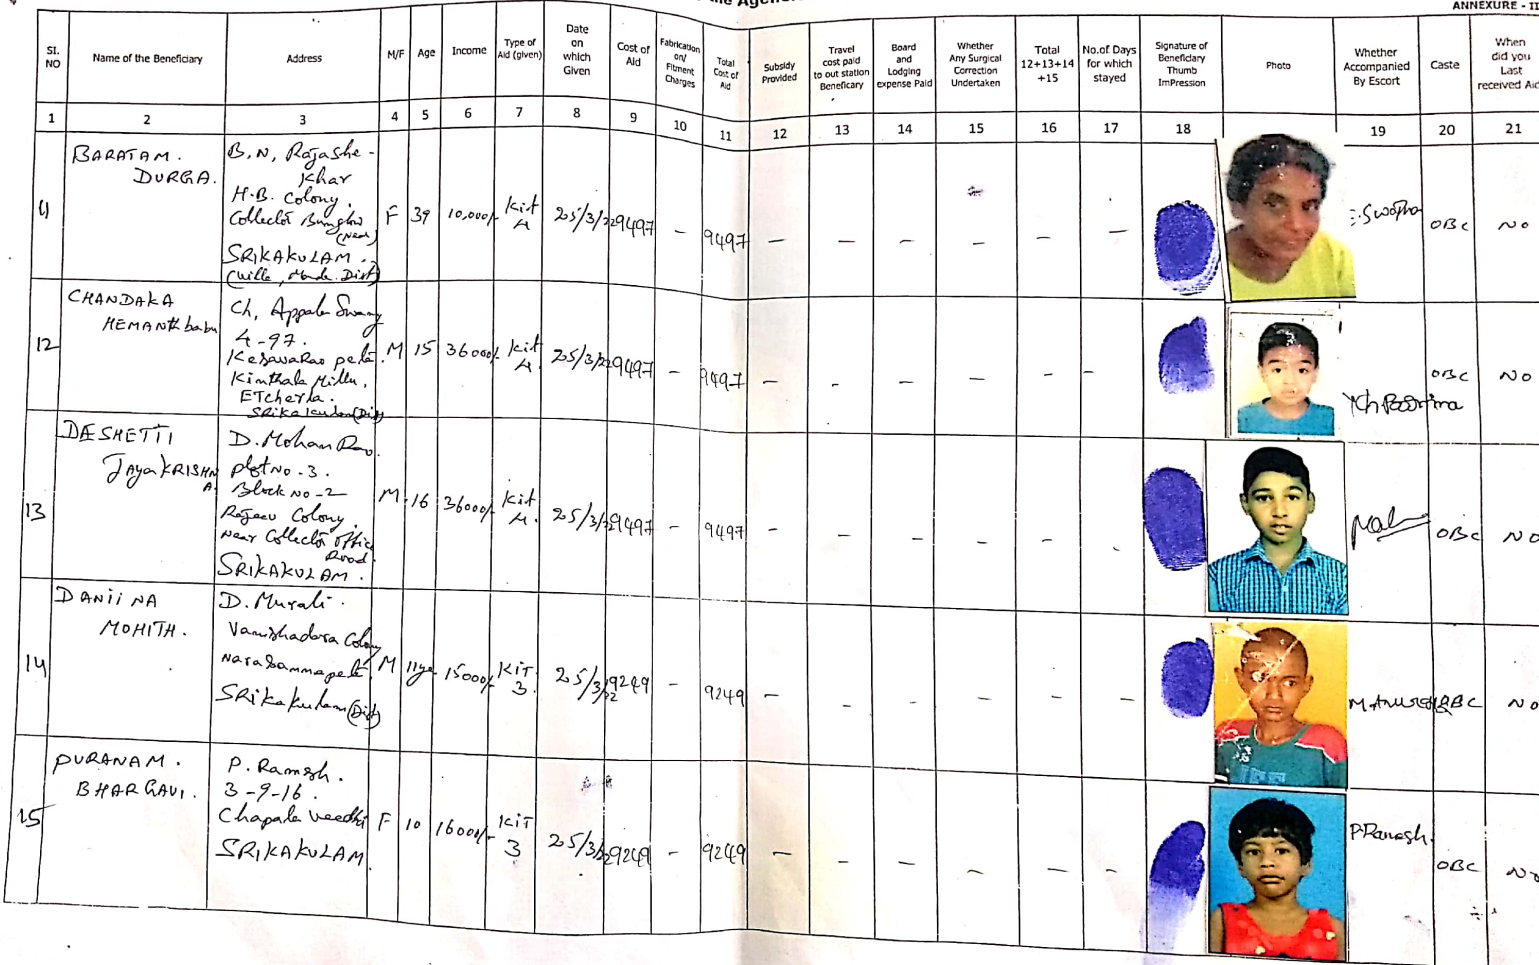 the Agen
ANNEXURE - II
SI. NO
Name of the Beneficiary
Address
M/F
Age
Income
Type of Aid (given)
Date on which Given
Cost of Aid
Fabrication on/ Fitment Charges
Total Cost of Aid
Subsidy Provided
Travel cost paid to out station Beneficary
Board and Lodging expense Paid
Whether Any Surgical Correction Undertaken
Total 12+13+14 +15
No.of Days for which stayed
Signature of Beneficiary Thumb ImPression
Photo
Whether Accompanied By Escort
Caste
When did you Last received Aid
1 2 3 4 5 6 7 8 9 10 11 12 13 14 15 16 17 18 19 20 21
BARATAM.
DURGA.
B.N, Rajashe-
khar
H.B. Colony.
Collector Bunglow
(Near)
SRIKAKULAM.
F 39 10,000/- Kit 4 25/3/22 9497 - 9497 - - - - - - Swapna OBC NO
12
CHANDAKA
HEMANth babu
Ch, Appala Swamy
4-97.
Kesavarao peta.
Kinthala Millu,
ETcherla.
Srikakulam (Dist)
M 15 36000/- Kit 4. 25/3/22 9497 - 9497 - - - - - - OBC NO
13
JayaKRISHNA
D. Mohan Rao.
plot No-3.
Block No-2
Rajeev Colony.
Near Collector office
Road.
SRIKAKULAM.
M 16 36000/- Kit 4. 25/3/22 9497 - 9497 - - - - - - OBC NO
14
MOHITH.
D. Murali.
Vamshadara Colony
Narasannapeta.
SRikakulam (Dist)
M 11ye 15000/- KIT 3. 25/3/22 9249 - 9249 - - - - - - OBC NO
15
PURANAM.
BHARGAVI.
P. Ramesh.
3-9-16.
Chapala veedhi
SRIKAKULAM.
F 10 16000/- KIT 3 25/3/22 9249 - 9249 - - - - - - P.Ramesh. OBC NO